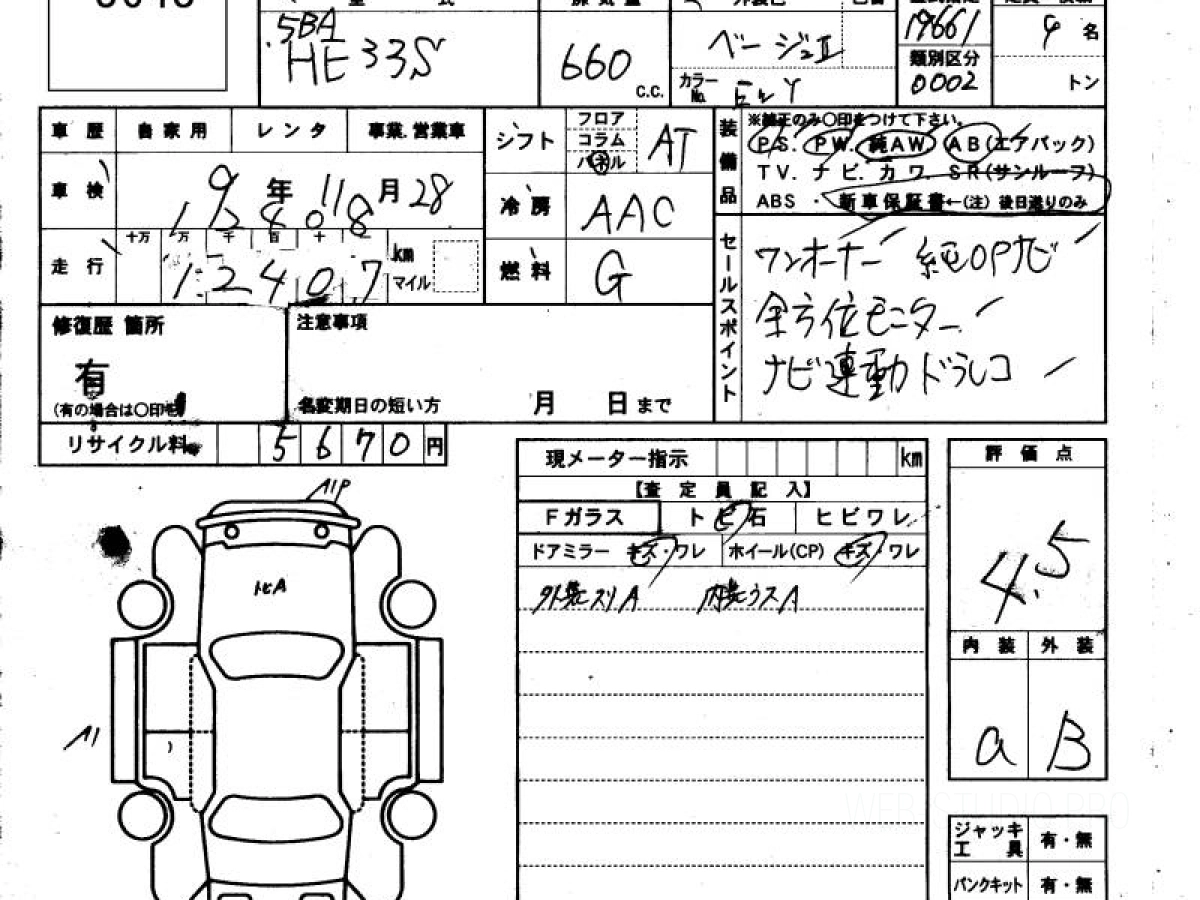 5BA
HE33S
660 C.C.
ベージュII
カラーNo.
19661
類別区分
0002
4 名
トン
車歴 自家用 レンタ 事業.営業車
車検 9年 11月 28
走行 十万 万 千 百 十 km マイル
1 2 4 0 7
シフト フロア コラム パネル AT
冷房 AAC
燃料 G
装備品
※純正のみ〇印をつけて下さい。
PS. PW. 純AW. AB(エアバック)
TV. ナビ. カワ. SR(サンルーフ)
ABS ・ 新車保証書←(注) 後日送りのみ
セールスポイント
ワンオーナー 純OPナビ
全方位モニター
ナビ連動ドラレコ
修復歴 箇所
有
(有の場合は〇印を
注意事項
名変期日の短い方 月 日まで
リサイクル料 5 6 7 0 円
現メーター指示 km
【査定員記入】
Fガラス トビ石 ヒビワレ
ドアミラー キズ・ワレ ホイール(CP) キズ・ワレ
外装スリA 内装ウスA
評価点
4.5
内装 外装
a B
ジャッキ工具 有・無
パンクキット 有・無
A1P
トビA
A1
WEB STUDIO PRO